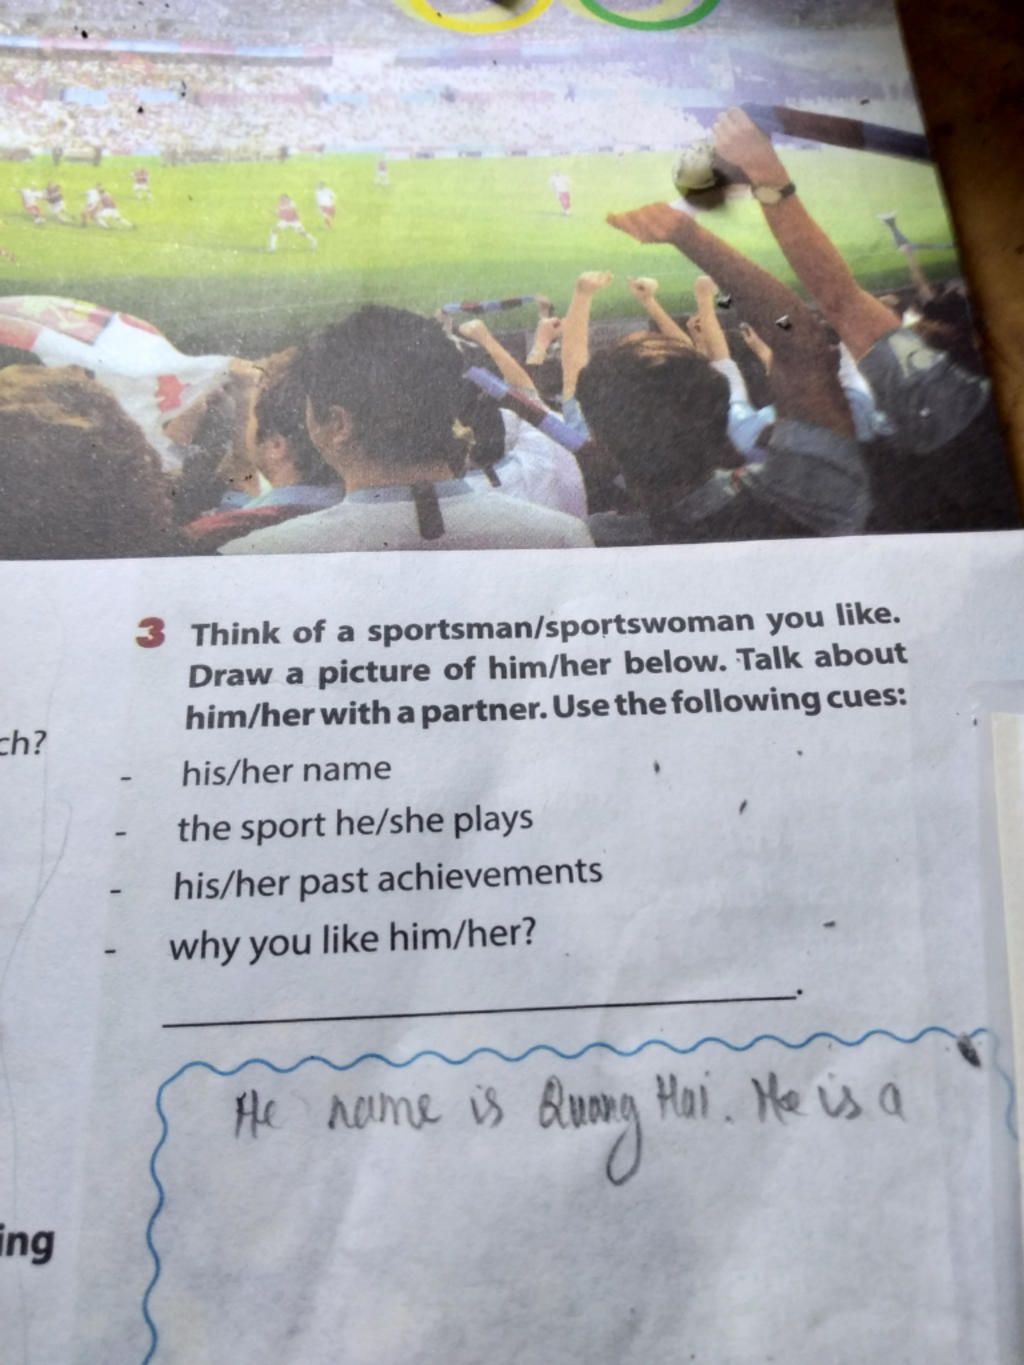 3 Think of a sportsman/sportswoman you like.
Draw a picture of him/her below. Talk about
him/her with a partner. Use the following cues:
ch?
- his/her name
- the sport he/she plays
- his/her past achievements
- why you like him/her?
He name is Quang Hai. He is a
ing